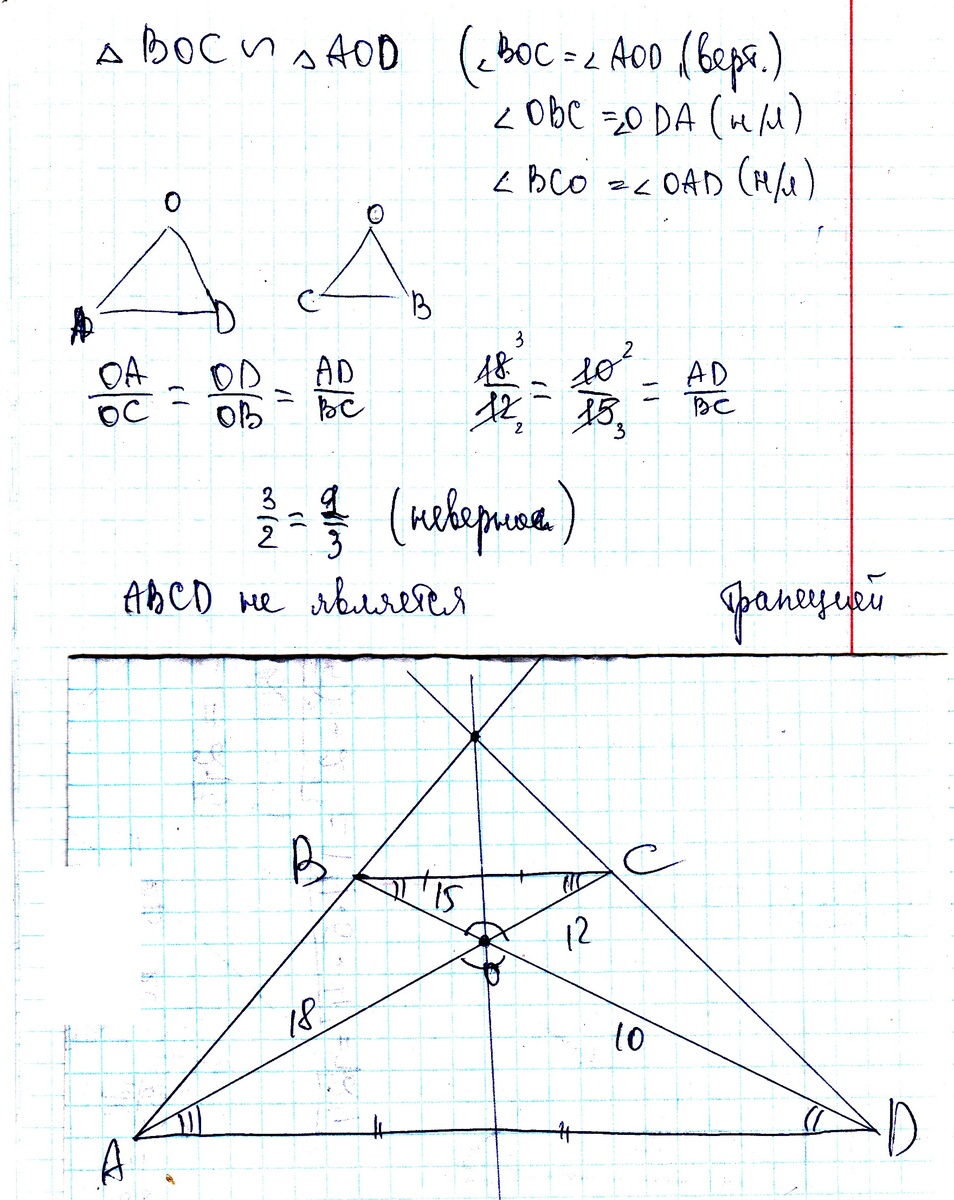 △ BOC ∽ △ AOD (∠BOC = ∠ AOD (верт.)
∠ OBC = ∠ODA (н/л)
∠ BCO = ∠OAD (н/л)
O O
A D C B
OA/OC = OD/OB = AD/BC 18/12 = 10/15 = AD/BC
3 2
2 3
3/2 = 2/3 (неверно)
ABCD не является трапецией
B C
15
12
O
18
10
A D